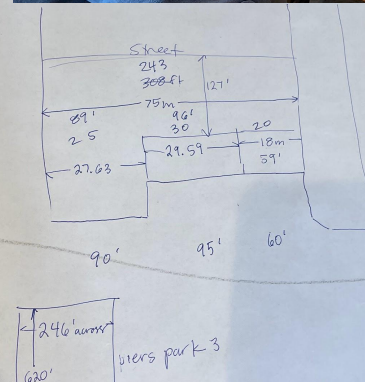 Street
243
308 ft
127'
75m
89'
96'
25
30
20
29.59
18m
27.63
59'
90'
95'
60'
246' across
piers park 3
620'